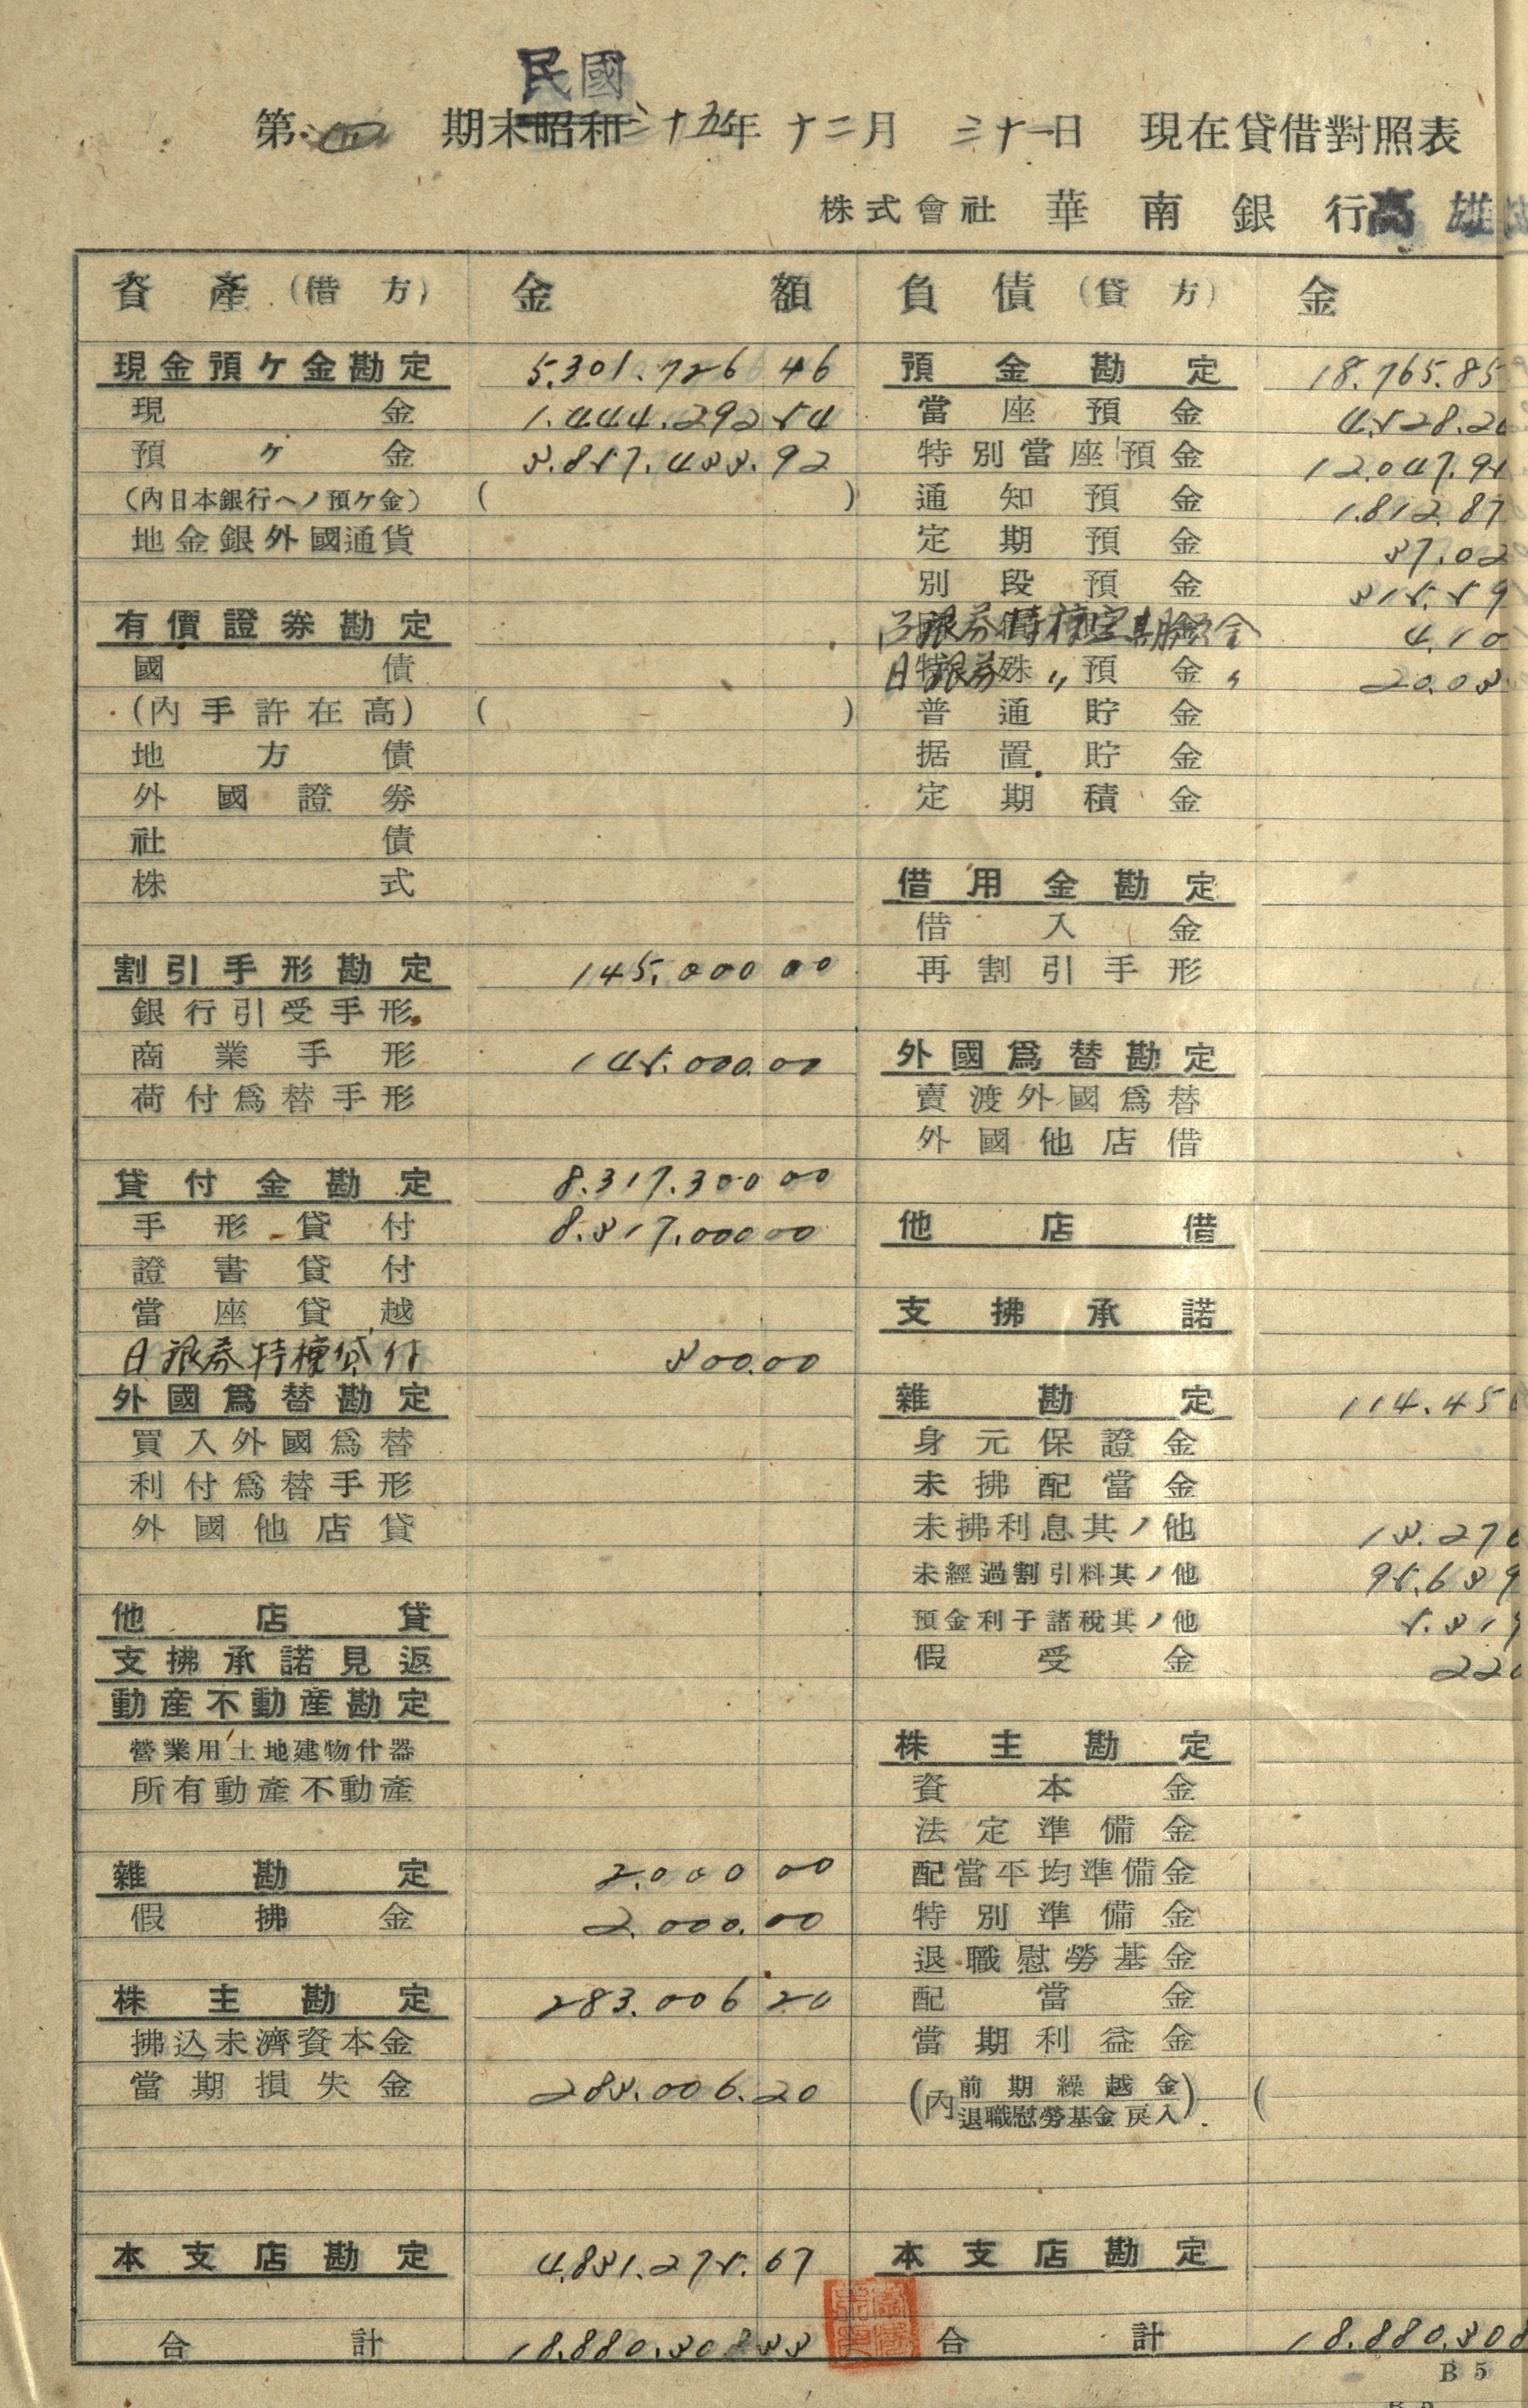 民國
第四期末昭和三十五年十二月三十一日 現在貸借對照表
株式會社 華南銀行高雄
資產(借方) 金額 負債(貸方) 金
現金預ケ金勘定 5.301.726 46 預金勘定 18.765.85
現金 1.444.292 54 當座預金 4.528.20
預ケ金 3.857.433.92 特別當座預金 12.047.95
(內日本銀行ヘノ預ケ金) ( ) 通知預金 1.812.87
地金銀外國通貨 定期預金 37.02
別段預金 315.59
有價證券勘定 銀券特種定期預金 4.10
國債 日銀券〃 特殊預金〃 20.03
(內手許在高) ( ) 普通貯金
地方債 据置貯金
外國證券 定期積金
社債
株式 借用金勘定
借入金
割引手形勘定 145.000 00 再割引手形
銀行引受手形
商業手形 145.000.00 外國爲替勘定
荷付爲替手形 賣渡外國爲替
外國他店借
貸付金勘定 8.317.300 00
手形貸付 8.317.000 00 他店借
證書貸付
當座貸越 支拂承諾
日銀券特種貸付 300.00
外國爲替勘定 雜勘定 114.45
買入外國爲替 身元保證金
利付爲替手形 未拂配當金
外國他店貸 未拂利息其ノ他 13.27
未經過割引料其ノ他 95.639
他店貸 預金利子諸稅其ノ他 5.31
支拂承諾見返 假受金 22
動産不動産勘定
營業用土地建物什器 株主勘定
所有動產不動產 資本金
法定準備金
雜勘定 2.000 00 配當平均準備金
假拂金 2.000.00 特別準備金
退職慰勞基金
株主勘定 283.006 20 配當金
拂込未濟資本金 當期利益金
當期損失金 283.006.20 (內 前期繰越金 退職慰勞基金戾入) (
本支店勘定 4.831.275.67 本支店勘定
合計 18.880.308 33 合計 18.880.308
B 5